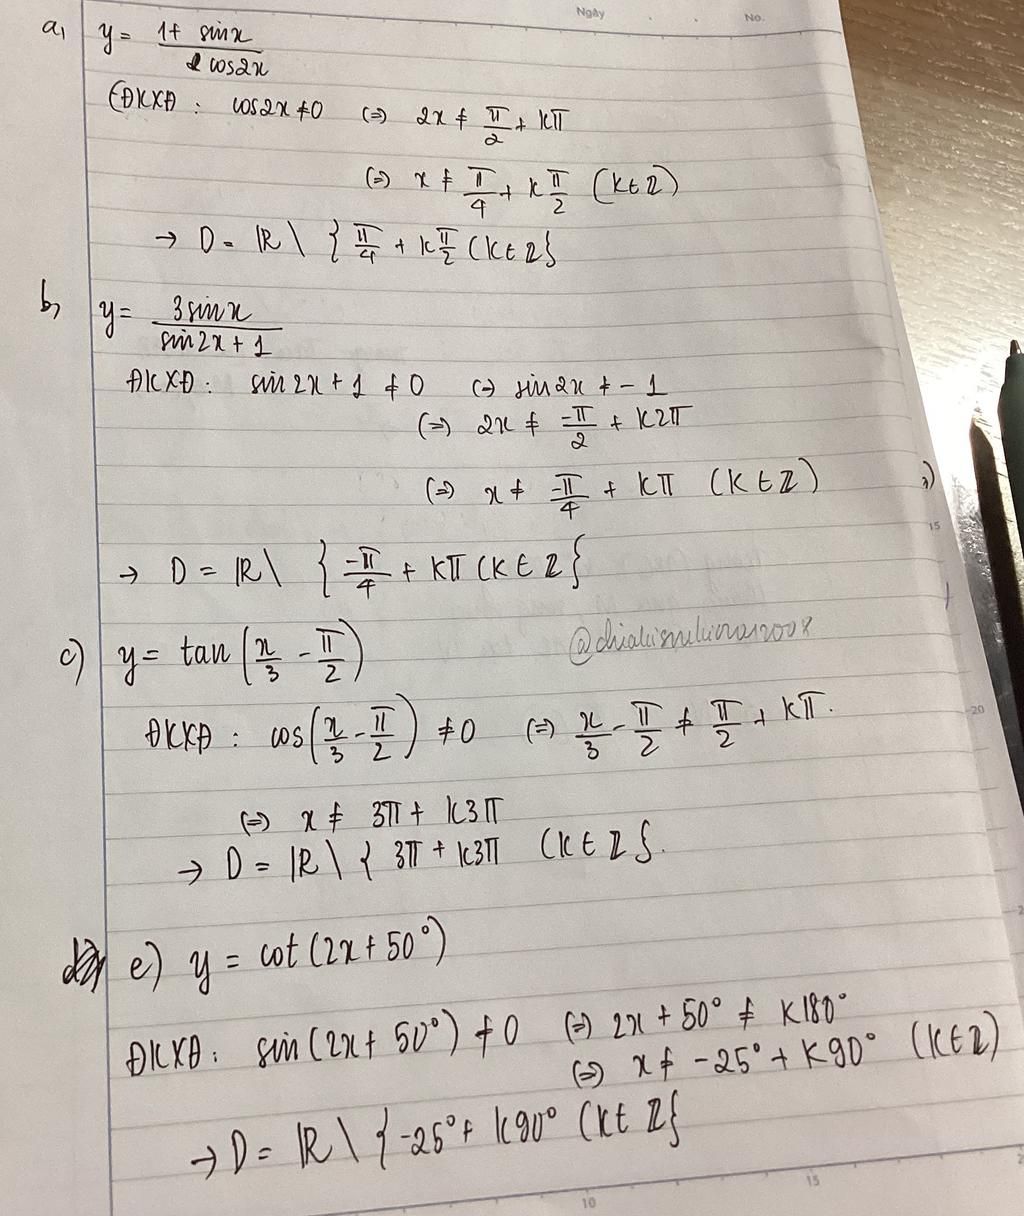 Ngày No.
a, y = (1 + sinx)/(cos2x)
ĐKXĐ : cos2x ≠ 0 (=) 2x ≠ π/2 + kπ
(=) x ≠ π/4 + k π/2 (k ∈ Z)
→ D = R \ { π/4 + k π/2 (k ∈ Z}
b, y = (3 sinx)/(sin2x + 1)
ĐKXĐ : sin 2x + 1 ≠ 0 (=) sin 2x ≠ - 1
(=) 2x ≠ -π/2 + k2π
(=) x ≠ -π/4 + kπ (k ∈ Z)
15
→ D = R \ { -π/4 + kπ (k ∈ Z}
c) y = tan (x/3 - π/2)
ĐKXĐ : cos (x/3 - π/2) ≠ 0 (=) x/3 - π/2 ≠ π/2 + kπ.
20
(=) x ≠ 3π + k3π
→ D = R \ { 3π + k3π (k ∈ Z}.
e) y = cot (2x + 50°)
ĐKXĐ : sin (2x + 50°) ≠ 0 (=) 2x + 50° ≠ k180°
(=) x ≠ -25° + k90° (k ∈ Z)
→ D = R \ { -25° + k90° (k ∈ Z}
10 15